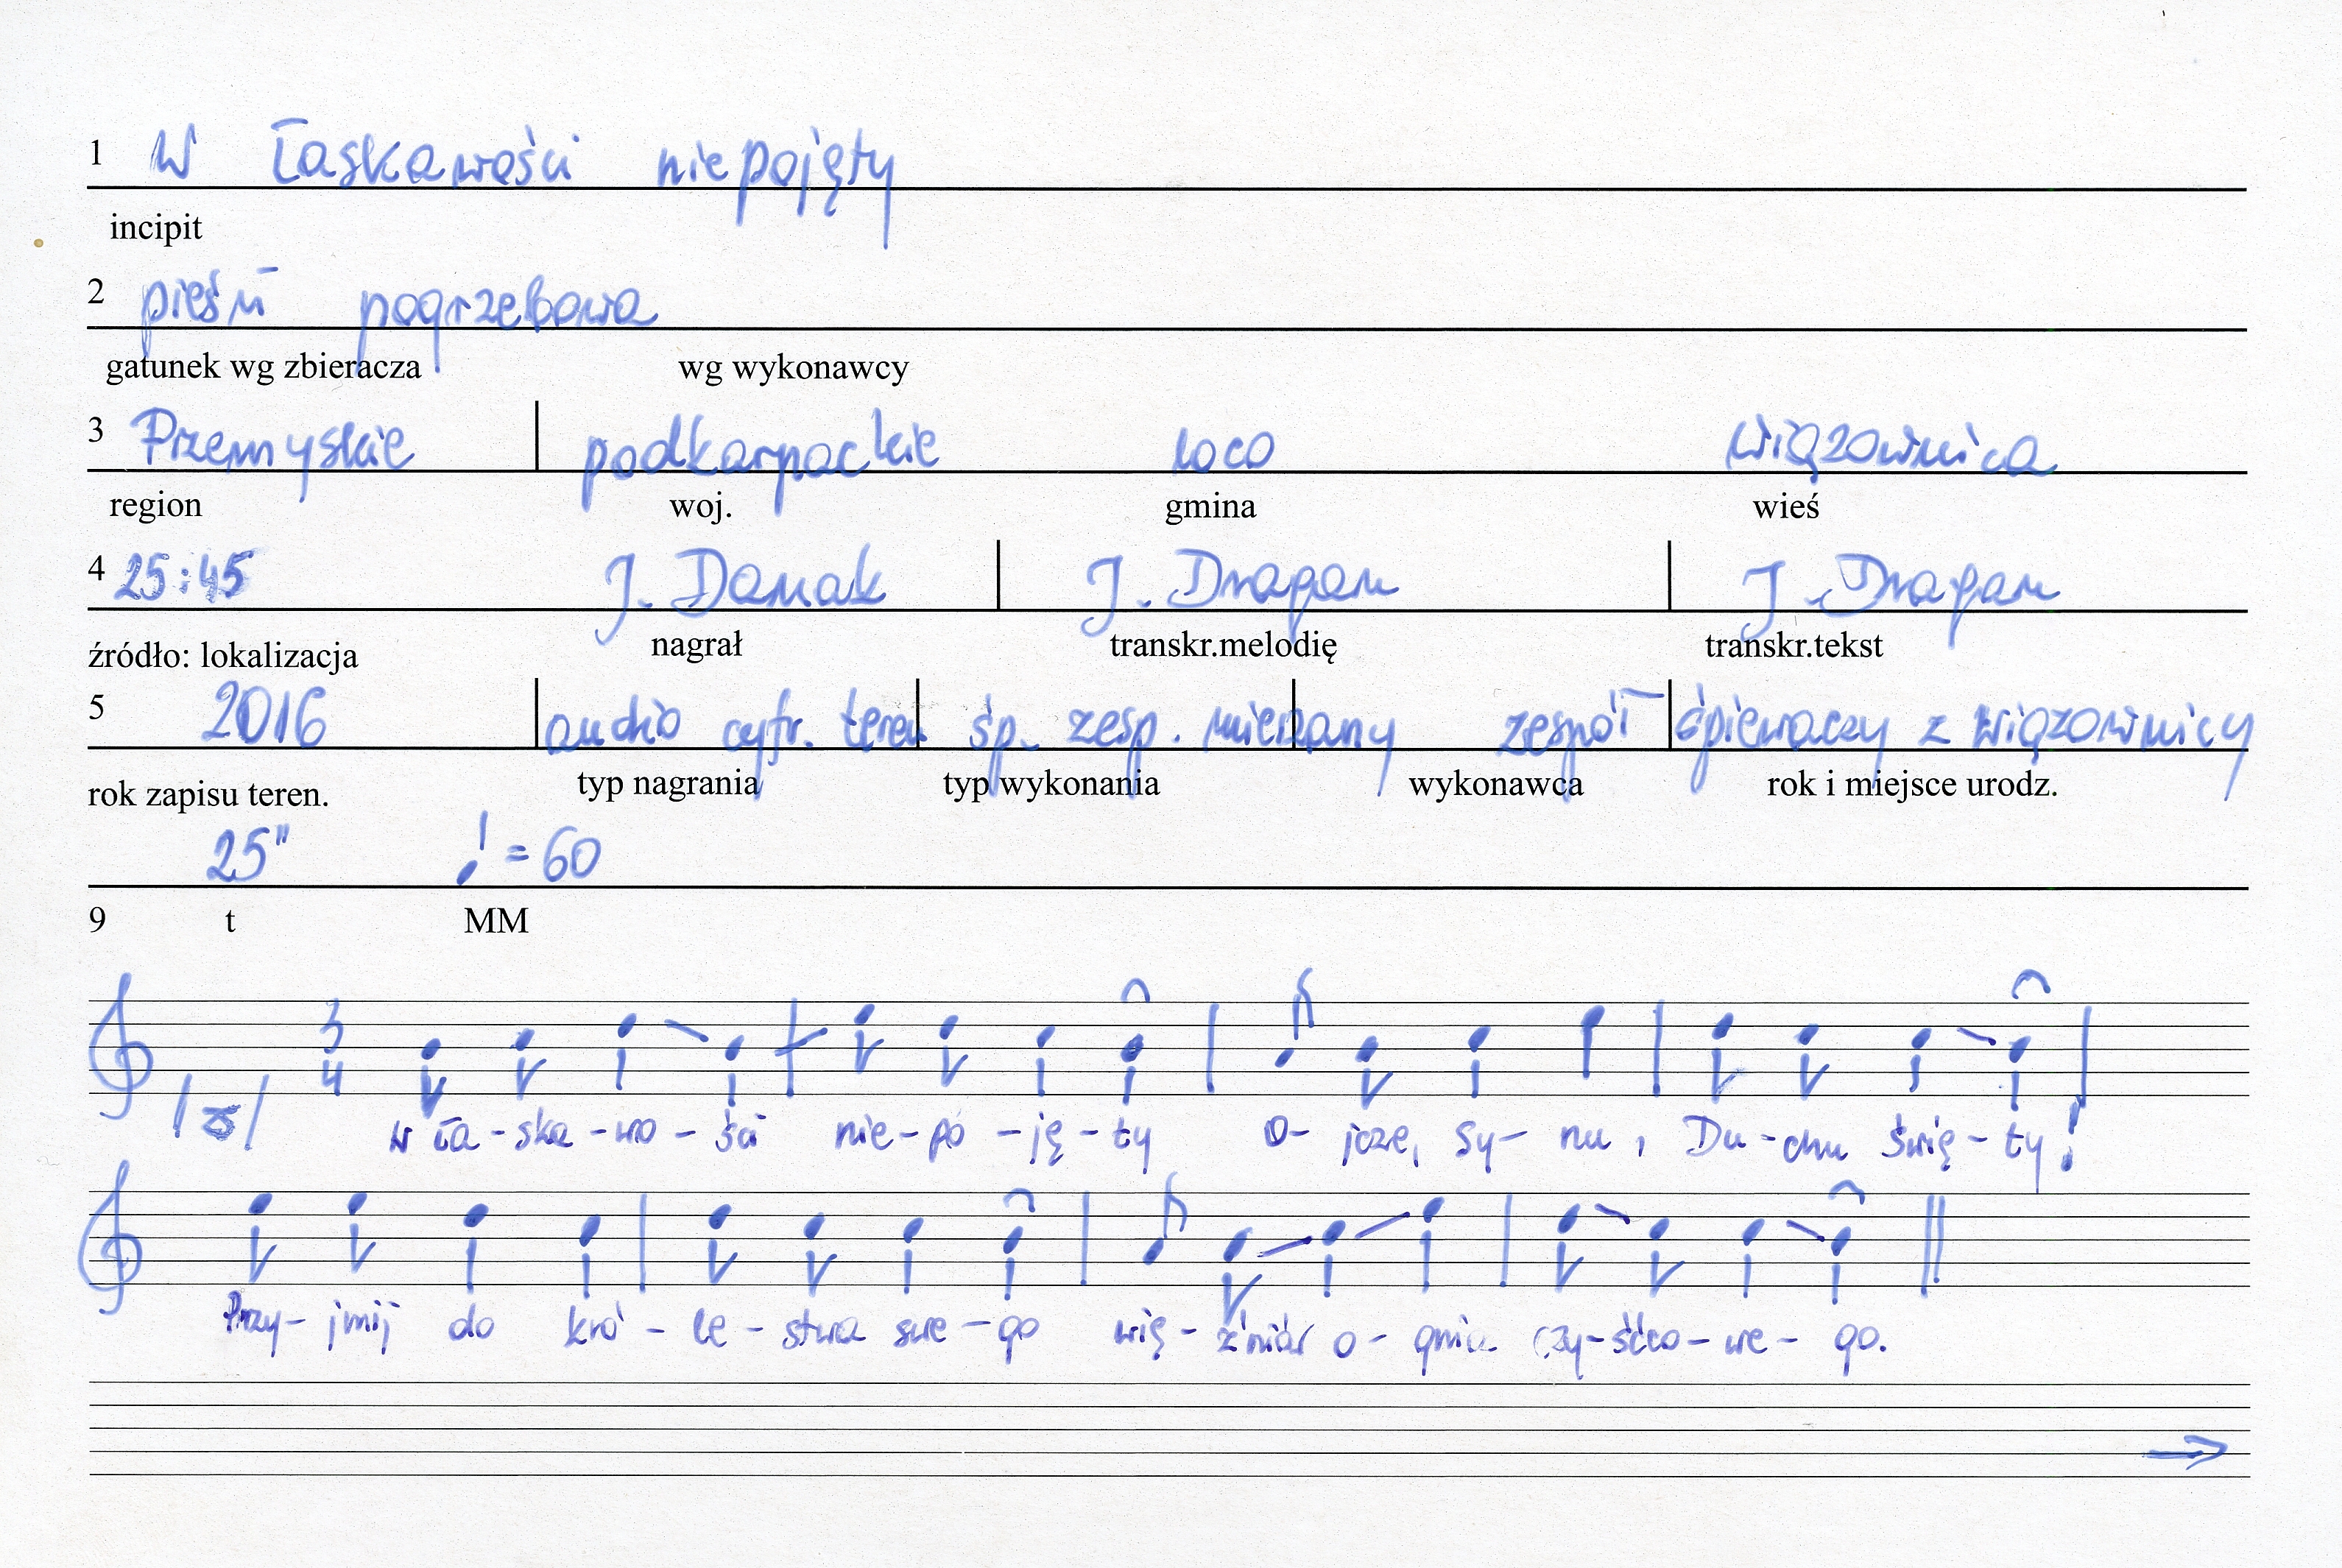 1 W łaskawości niepojęty
incipit
2 pieśń pogrzebowa
gatunek wg zbieracza wg wykonawcy
3 Przemyskie podkarpackie loco Wiązownica
region woj. gmina wieś
4 25:45 J. Danak J. Dragan J. Dragan
źródło: lokalizacja nagrał transkr.melodię transkr.tekst
5 2016 audio cyfr. teren śp. zesp. mieszany zespół śpiewaczy z Wiązownicy
rok zapisu teren. typ nagrania typ wykonania wykonawca rok i miejsce urodz.
25" = 60
9 t MM
3
4
W ła-ska-wo-ści nie-po-ję-ty O-jcze, Sy-nu, Du-chu świę-ty!
Przy-jmij do kró-le-stwa swe-go wię-źniów o-gnia czy-śćco-we-go.